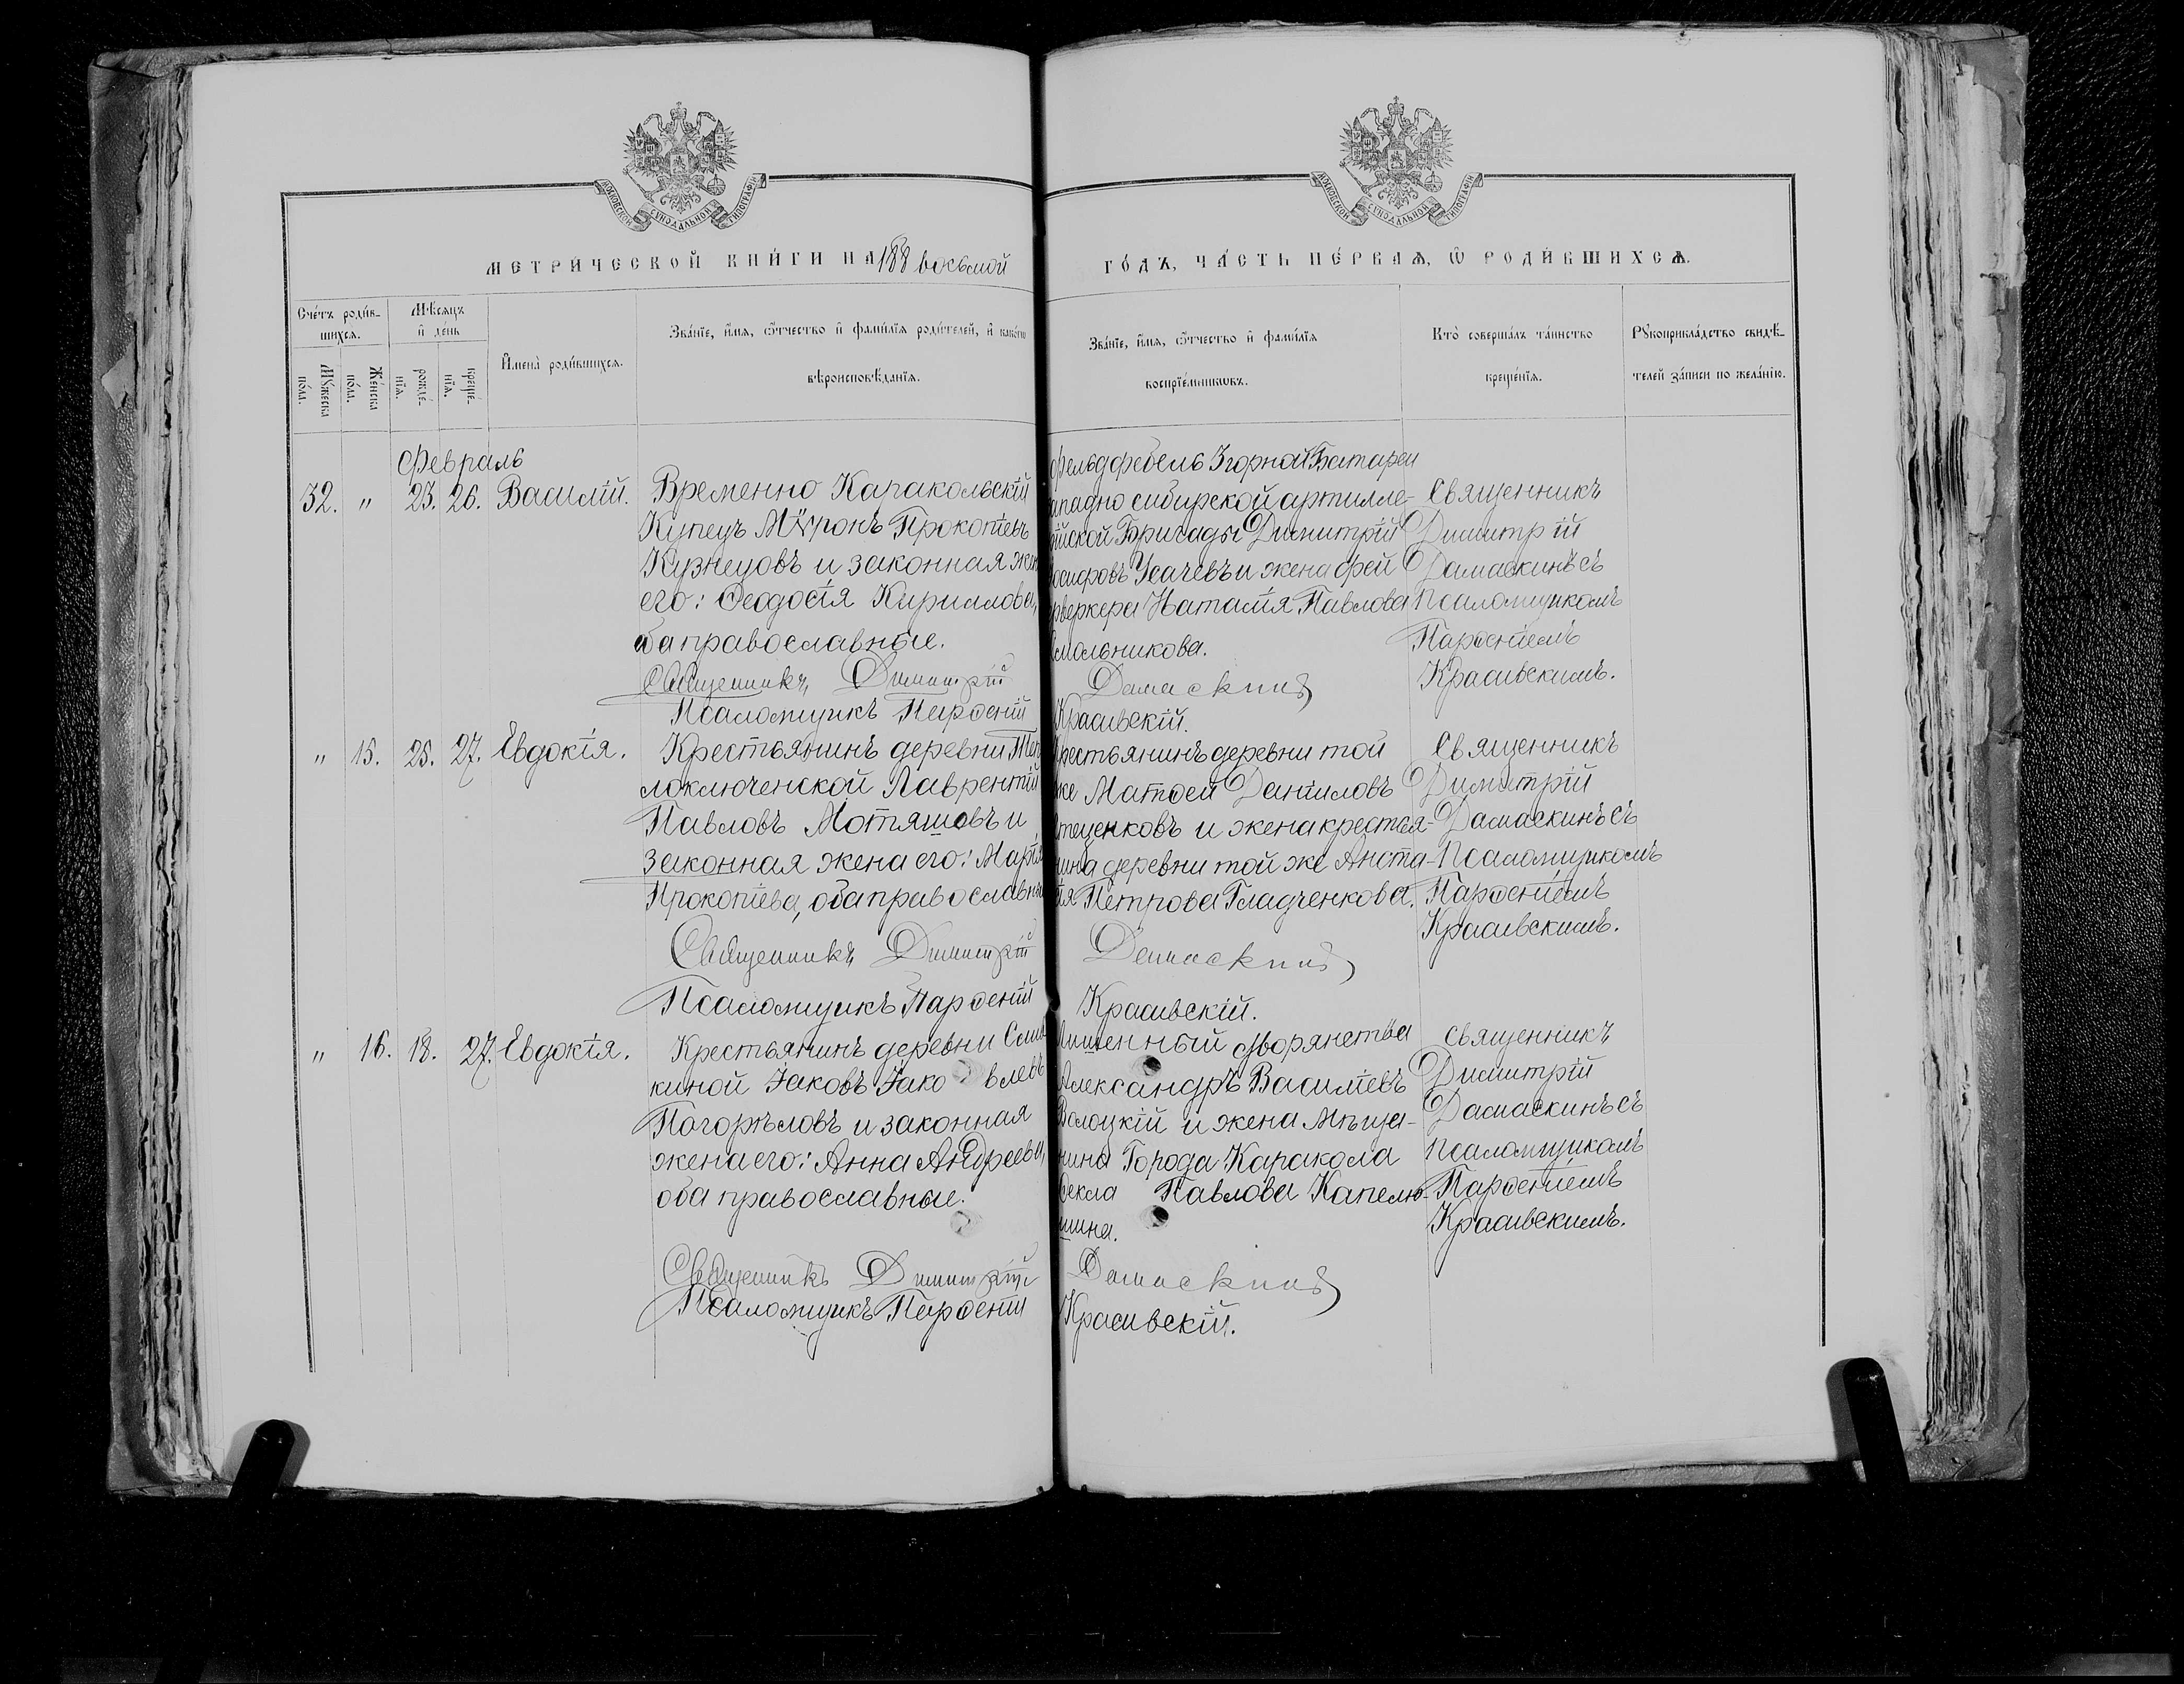 МОСКОВСКОЙ СѴНОДАЛЬНОЙ ТИПОГРАФІИ
МОСКОВСКОЙ СѴНОДАЛЬНОЙ ТИПОГРАФІИ
МЕТРИ́ЧЕСКОЙ КНИ́ГИ НА 188 восьмой
ГО́ДЪ, ЧА́СТЬ ПЕ́РВАѦ, Ѿ РОДИ́ВШИХСѦ.
Сче́тъ роди́в-
шихся.
Мꙋжеска по́ла.
Же́нска по́ла.
Мѣ́сяцъ
и҆ де́нь
рожде́-
нїѧ.
креще́-
нїѧ.
И҆мена̀ роди́вшихся.
Зва́нїе, и҆́мя, ѻ҆́тчество и҆ фами́лїя роди́телей, и҆ како́гѡ
вѣроисповѣ́данїя.
Зва́нїе, и҆́мя, ѻ҆́тчество и҆ фами́лїя
воспрїе́мникѡвъ.
Кто̀ соверша́лъ та́инство
креще́нїя.
Рꙋкоприкла́дство свидѣ́-
телей за́писи по жела́нїю.
Февраль
32. " 23. 26. Василій.
Временно Каракольскій
Купецъ Мѵронъ Прокопіевъ
Кузнецовъ и законная жен
его: Ѳеодосія Кириллова,
оба православные.
Священникъ Димитрій
Псаломщикъ Парѳеній
Фельдфебель 3 горной Батареи
ападно сибирской артилле-
ійской Бригады Димитрій
осифовъ Усачевъ и жена фей
рверкера Наталія Павлова
мольникова.
Дамаскинъ
Красивскій.
Священникъ
Димитрій
Дамаскинъ съ
псаломщикомъ
Парѳеніемъ
Красивскимъ.
" 15. 25. 27. Евдокія.
Крестьянинъ деревни Теп
лоключенской Лаврентій
Павловъ Мотяшовъ и
законная жена его: Марія
Прокопіева, оба православны
Священникъ Димитрій
Псаломщикъ Парѳеній
рестьянинъ деревни той
же Матѳей Даніиловъ
теценковъ и жена крестья-
нина деревни той же Анста-
ія Петрова Гладченкова.
Дамаскинъ
Красивскій.
Священникъ
Димитрій
Дамаскинъ съ
псаломщикомъ
Парѳеніемъ
Красивскимъ.
" 16. 18. 27. Евдокія.
Крестьянинъ деревни Слив
киной Іаковъ Іаковлевъ
Погорѣловъ и законная
жена его: Анна Андреева,
оба православные.
Священникъ Димитрій
Псаломщикъ Парѳеній
Лишенный дворянства
Александръ Василіевъ
Волоцкій и жена мѣща-
нина Города Каракола
Ѳекла Павлова Капелю-
шина.
Дамаскинъ
Красивскій.
Священникъ
Димитрій
Дамаскинъ съ
псаломщикомъ
Парѳеніемъ
Красивскимъ.